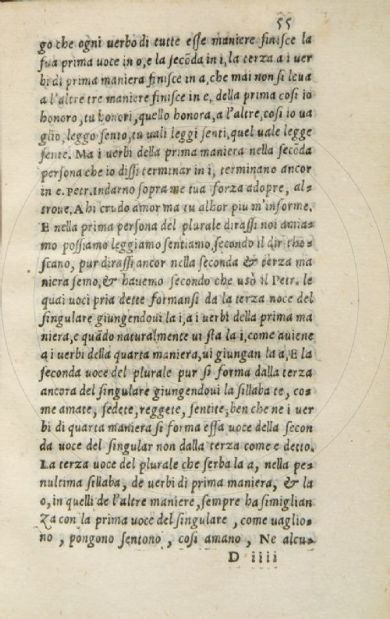 55
go che ogni verbo di tutte esse maniere finisce la
sua prima voce in o, e la secõda in i, la terza a i ver
bi di prima maniera finisce in a, che mai non si leua
a l'altre tre maniere finisce in e. della prima cosi io
honoro, tu honori, quello honora, a l'altre, cosi io ua
glio, leggo sento, tu uali leggi senti, quel uale legge
sente. Ma i verbi della prima maniera nella secõda
persona che io dissi terminar in i, terminano ancor
in e. Petr. indarno sopra me tua forza adopre, al-
troue. Ahi crudo amor ma tu alhor piu m'informe.
E nella prima persona del plurale dirassi noi amia-
mo possiamo leggiamo sentiamo, secondo il dir tho-
scano, pur dirassi ancor nella seconda & terza ma
niera semo, & hauemo secondo che usò il Petr. le
quai voci pria dette formansi da la terza uoce del
singulare giungendoui la i, a i uerbi della prima ma
niera, e quãdo naturalmente ui sta la i, come auiene
a i uerbi della quarta maniera, ui giungan la a, E la
seconda voce del plurale pur si forma dalla terza
ancora del singulare giungendoui la sillaba te, co-
me amate, sedete, reggete, sentite, ben che ne i uer
bi di quarta maniera si forma essa uoce della secon
da uoce del singular non dalla terza come e detto.
La terza uoce del plurale che serba la a, nella pe-
nultima sillaba, de uerbi di prima maniera, & la
o, in quelli de l'altre maniere, sempre ha simiglian
za con la prima uoce del singulare, come uaglio-
no, pongono sentono, cosi amano, Ne alcu-
D iiii